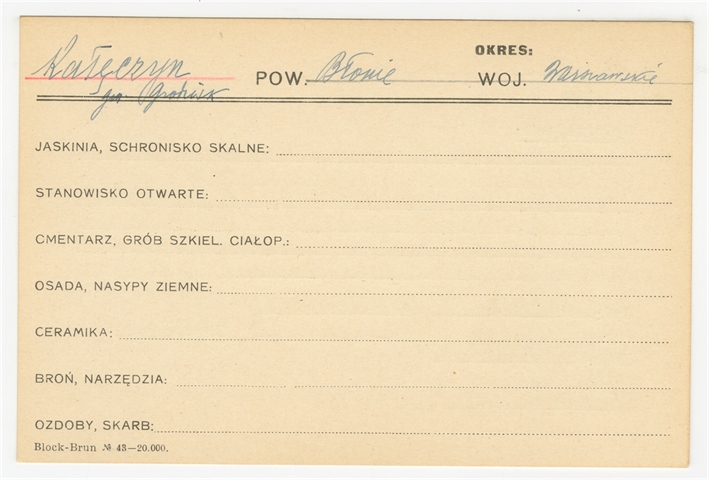 OKRES:
Kałęczyn POW. Błonie WOJ. Warszawskie
gm. Grodzisk
JASKINIA, SCHRONISKO SKALNE:
STANOWISKO OTWARTE:
CMENTARZ, GRÓB SZKIEL. CIAŁOP.:
OSADA, NASYPY ZIEMNE:
CERAMIKA:
BROŃ, NARZĘDZIA:
OZDOBY, SKARB:
Block-Brun № 43—20.000.